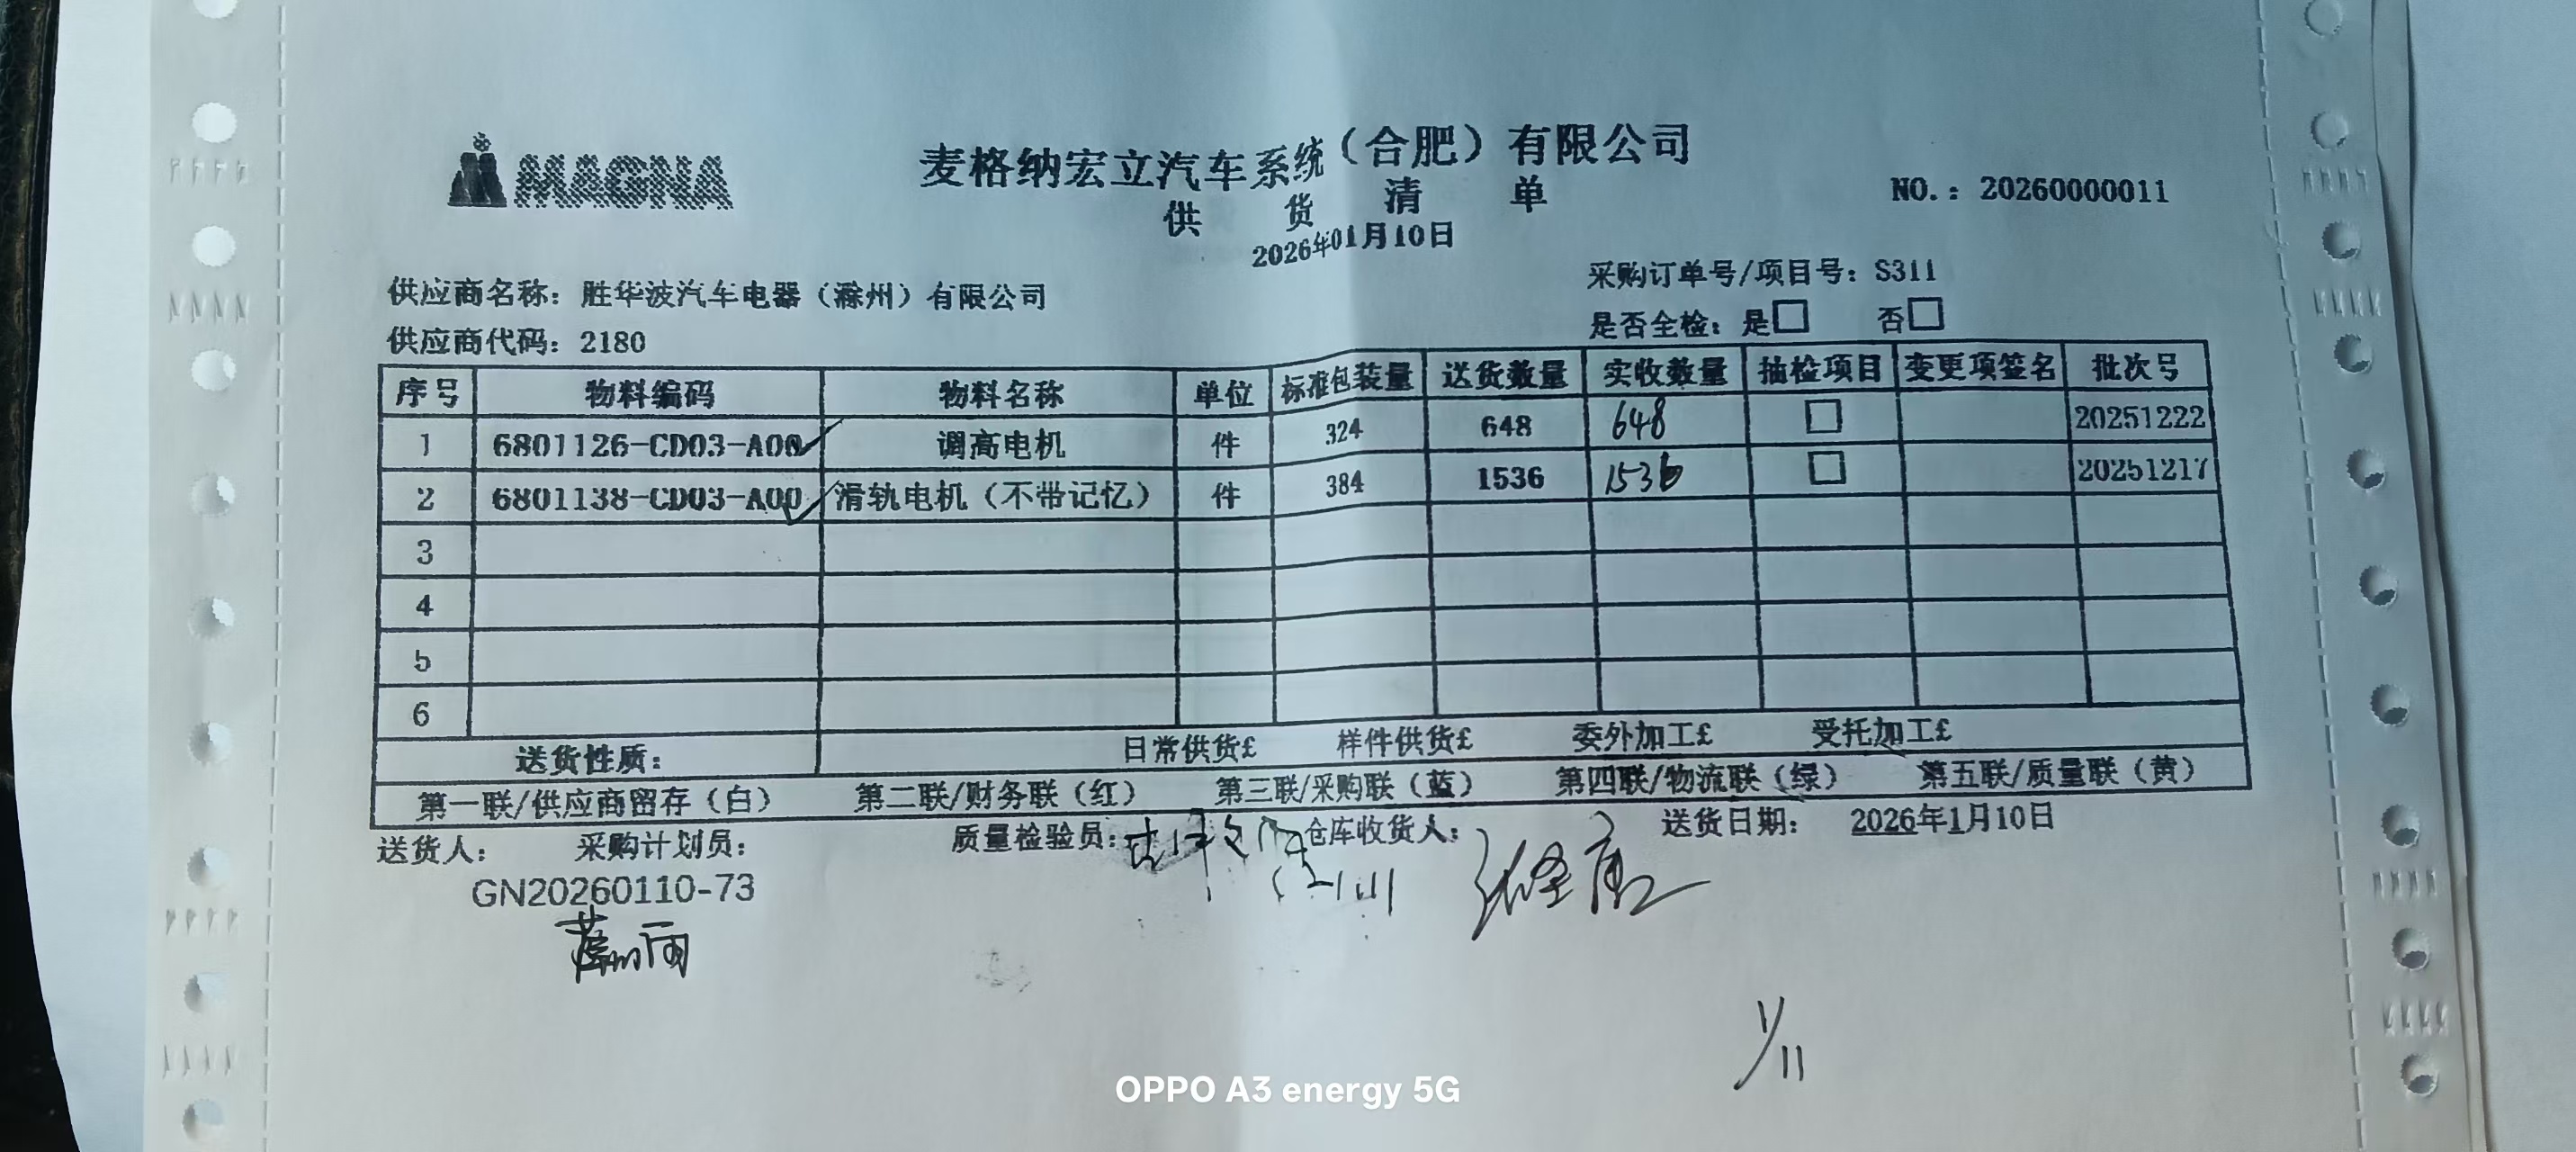 MAGNA
麦格纳宏立汽车系统（合肥）有限公司
供 货 清 单
NO.：20260000011
2026年01月10日
供应商名称：胜华波汽车电器（滁州）有限公司
采购订单号/项目号：S311
供应商代码：2180
是否全检：是□ 否□
序号 物料编码 物料名称 单位 标准包装量 送货数量 实收数量 抽检项目 变更项签名 批次号
1 6801126-CD03-A00 调高电机 件 324 648 648 □ 20251222
2 6801138-CD03-A00 滑轨电机（不带记忆） 件 384 1536 1536 □ 20251217
3
4
5
6
送货性质： 日常供货£ 样件供货£ 委外加工£ 受托加工£
第一联/供应商留存（白） 第二联/财务联（红） 第三联/采购联（蓝） 第四联/物流联（绿） 第五联/质量联（黄）
送货人： 采购计划员： 质量检验员： 仓库收货人： 送货日期： 2026年1月10日
GN20260110-73
1/11
OPPO A3 energy 5G